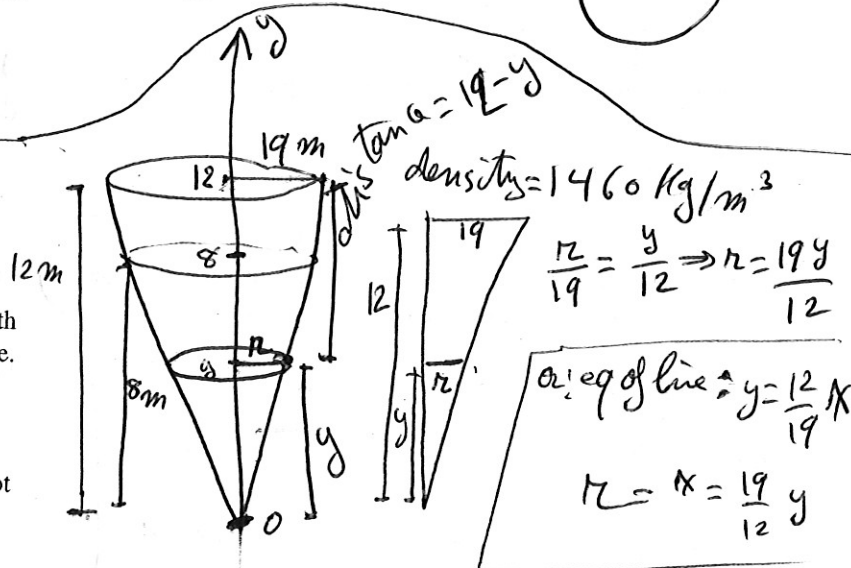 y
19 m
12
distance = 12-y
density=1460 Kg/m³
12 m
8
r
y
8m
y
0
19
12
r
y
r/19 = y/12 ⇒ r = 19y/12
or: eq of line: y = 12/19 x
r = x = 19/12 y
th
e.
ot